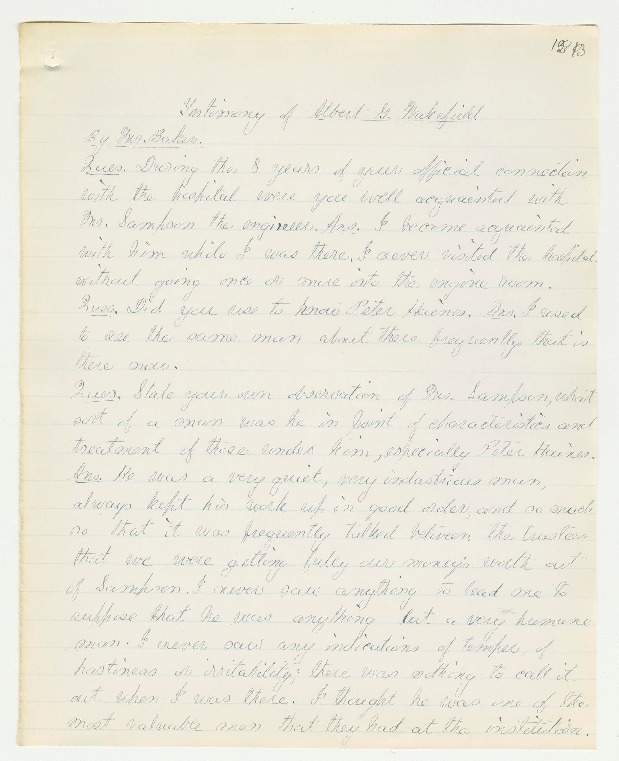 Testimony of Albert G. Wakefield
By Mr. Baker.
Ques. During the 8 years of your official connection
with the hospital were you well acquainted with
Mr. Sampson the engineer. Ans. I became acquainted
with him while I was there. I never visited the hospital
without going once or more into the engine room.
Ques. Did you use to know Peter Haines. Ans. I used
to see the same man about there frequently that is
there now.
Ques. State your own observation of Mr. Sampson, what
sort of a man was he in point of characteristics and
treatment of those under him, especially Peter Haines.
Ans. He was a very quiet, very industrious man,
always kept his work up in good order, and so much
so that it was frequently talked between the trustees
that we were getting fully our money's worth out
of Sampson. I never saw anything to lead me to
suppose that he was anything but a very humane
man. I never saw any indications of temper, of
hastiness or irritability; there was nothing to call it
out when I was there. I thought he was one of the
most valuable men that they had at the institution.